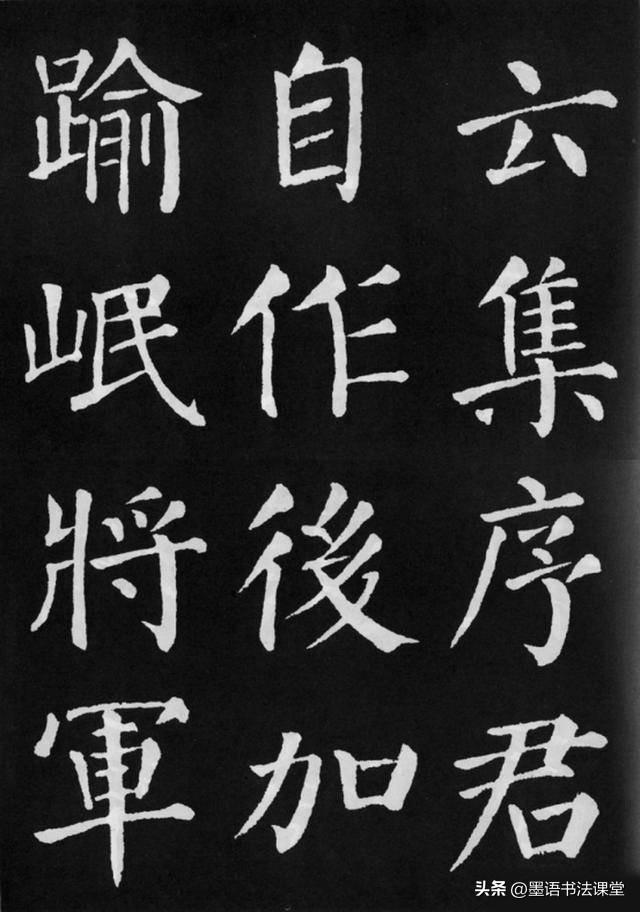 云集序君
自作後加
踰岷將軍
头条 @墨语书法课堂